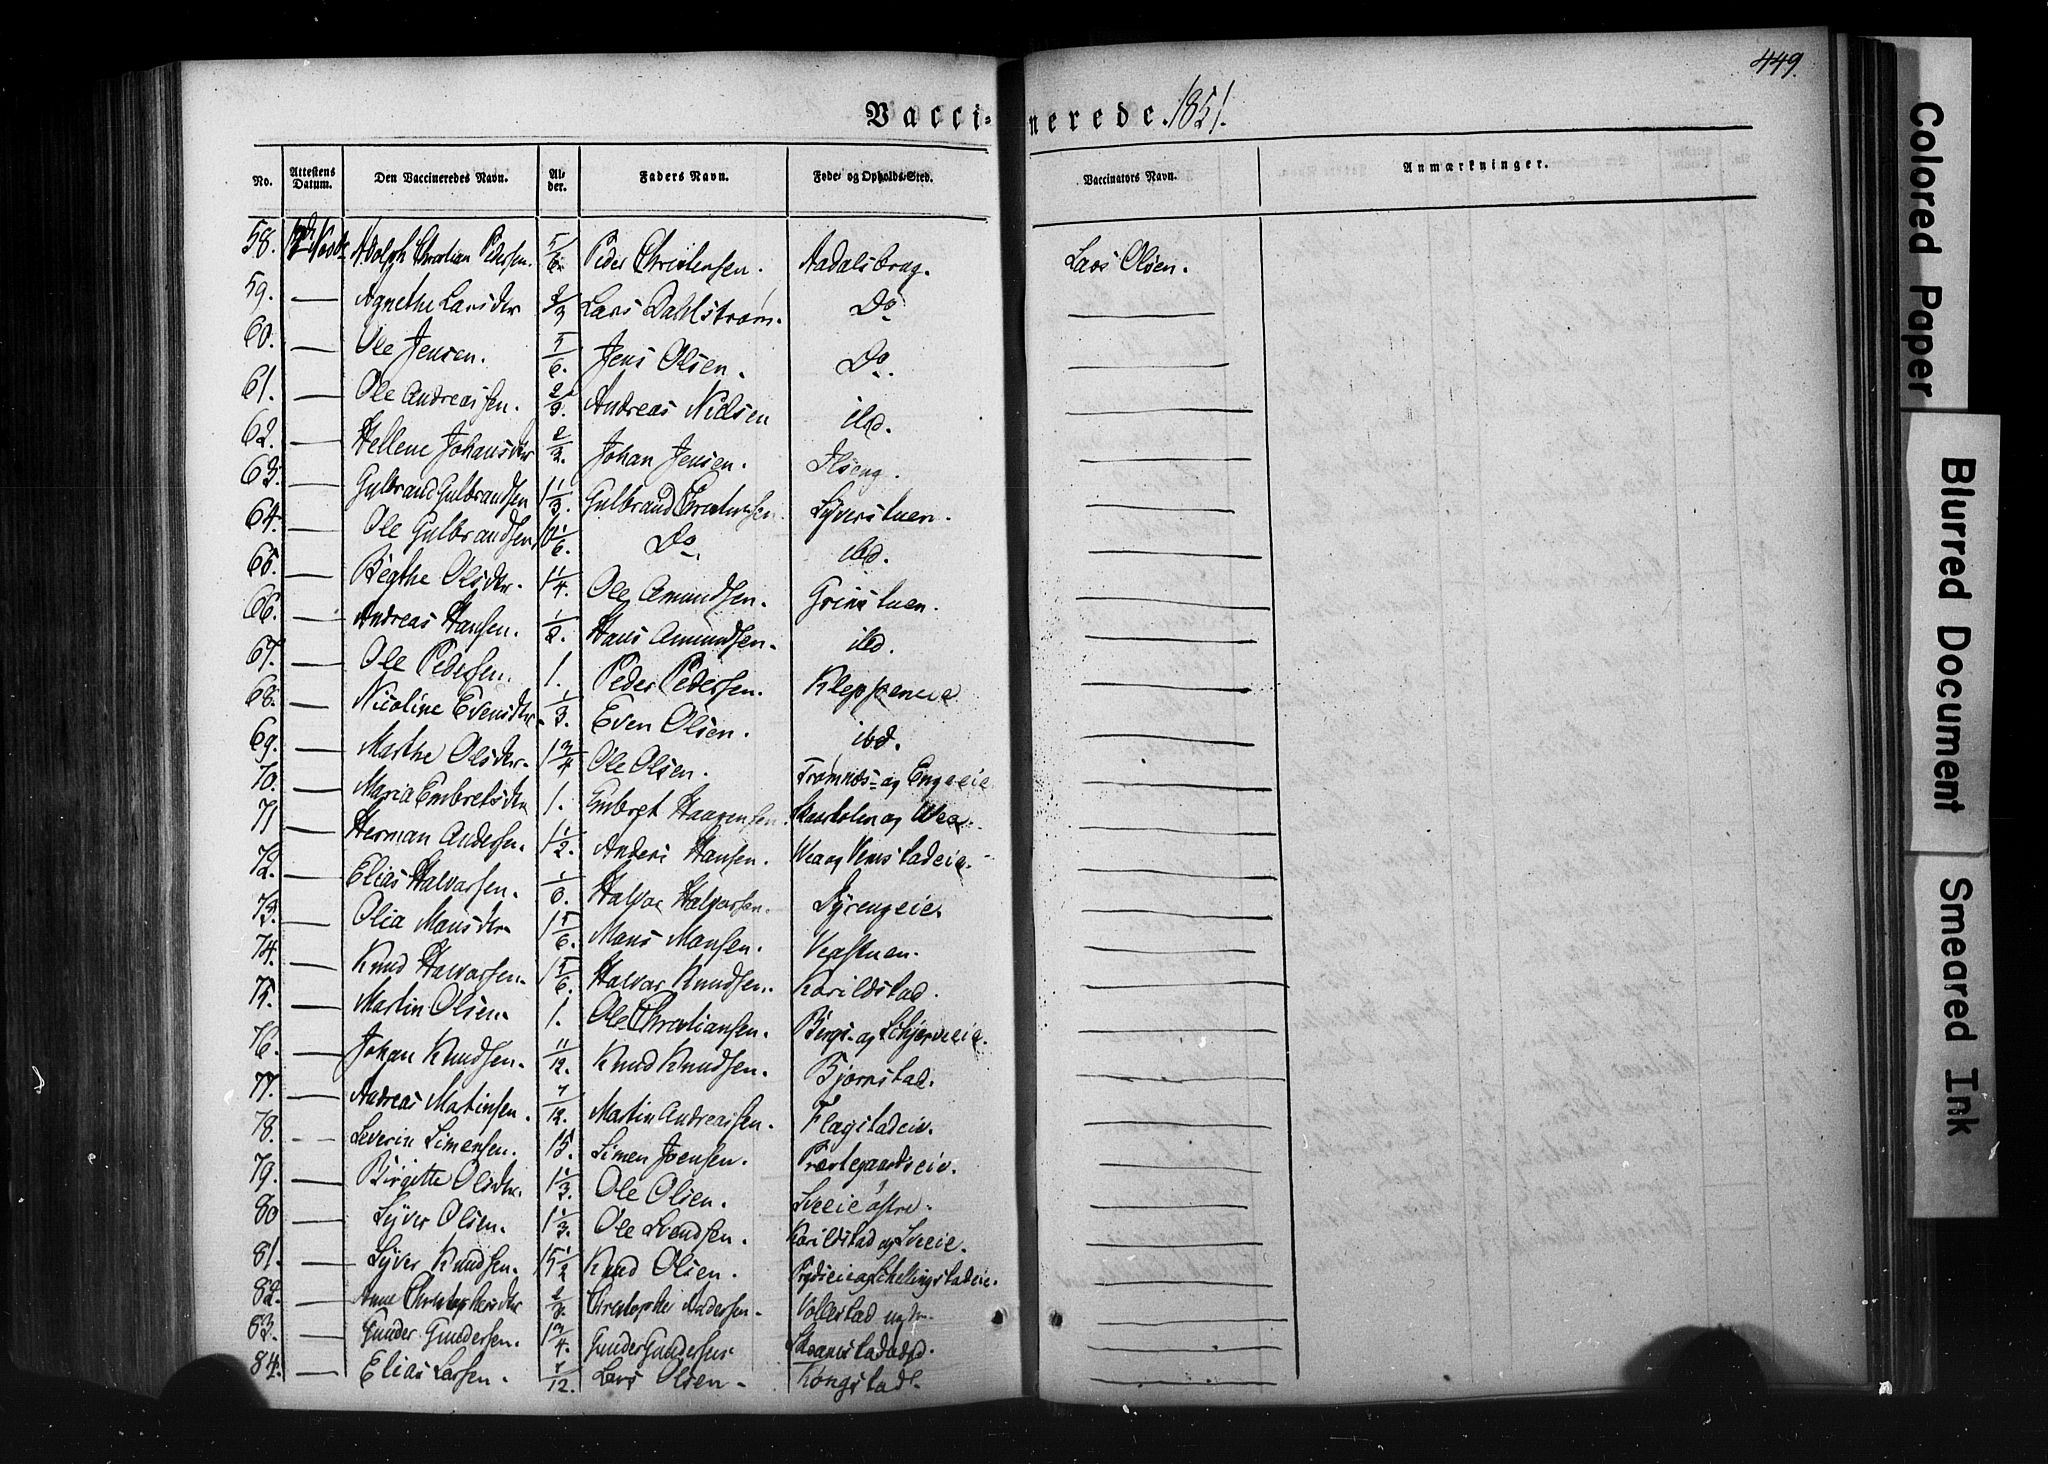 449.
Vaccinerede. 1851.
No. Attestens Datum. Den Vaccineredes Navn. Alder. Faders Navn. Føde- og Opholds-Sted. Vaccinators Navn. Anmærkninger.
58. Adolph Christian Pedersen. 5/6. Peder Christensen. Aadalsbrug. Lars Olsen.
59. — Agnethe Larsdtr 2/3 Lars Dahlstrøm. Do —
60. — Ole Jensen. 5/6. Jens Olsen. Do. —
61. — Ole Andreassen. 2/3. Andreas Nielsen ibd. —
62. — Hellene Johansdtr 2/3. Johan Jensen. Ilseng. —
63. — Gulbrand Gulbrandsen 1 1/3. Gulbrand Syverstuen. —
64. — Ole Gulbrandsen 1/6. Do. ibd. —
65. — Olsdtr. 1 1/4. Ole Amundsen. Grinstuen. —
66. — Andreas Hansen. 1/2. Hans Amundsen. ibd. —
67. — Ole Pedersen. 1. Peder Pedersen. Kleppeneie —
68. — Nicoline Evensdtr. 1/3. Even Olsen. ibd. —
69. — Marthe Olsdtr. 1 3/4 Ole Olsen. og Engeeie —
70. — Maria Embretsdtr 1. Embret Haagensen. og —
71 — Herman Andersen. 1 1/2. Anders Hansen. —
72. — Elias Halvorsen. Halvor Halvorsen. —
73. — Olia Mansdtr 1 5/6. Mans Mansen. —
74. — Knud Halvorsen. 1 5/6. Halvor Knudsen. Karildstad. —
75. — Martin Olsen. 1. Ole Christiansen. Bergs- og —
76. — Johan Knudsen. 11/12. Knud Knudsen. Bjørnstad. —
77. — Andreas Martinsen. 7/12. Martin Andreassen. Flagstadeie. —
78. — Severin Simensen. 15. Simen Joensen. Præstegaardseie. —
79. — Birgitte Olsdtr. 1 1/3. Ole Olsen. Sveeie østre. —
80 — Syver Olsen. 1 1/3. Ole Svendsen. Karildstad og Sveeie. —
81. — Syver Knudsen. 15 1/2 Knud Olsen. —
82. — Anne Christophersdtr 2/3. Christopher Andersen. —
83. — Gunder Gundersen. 1 3/4. Gunder Gundersen —
84. — Elias Larsen. 7/12. Lars Olsen. —
Colored Paper
Blurred Document
Smeared Ink